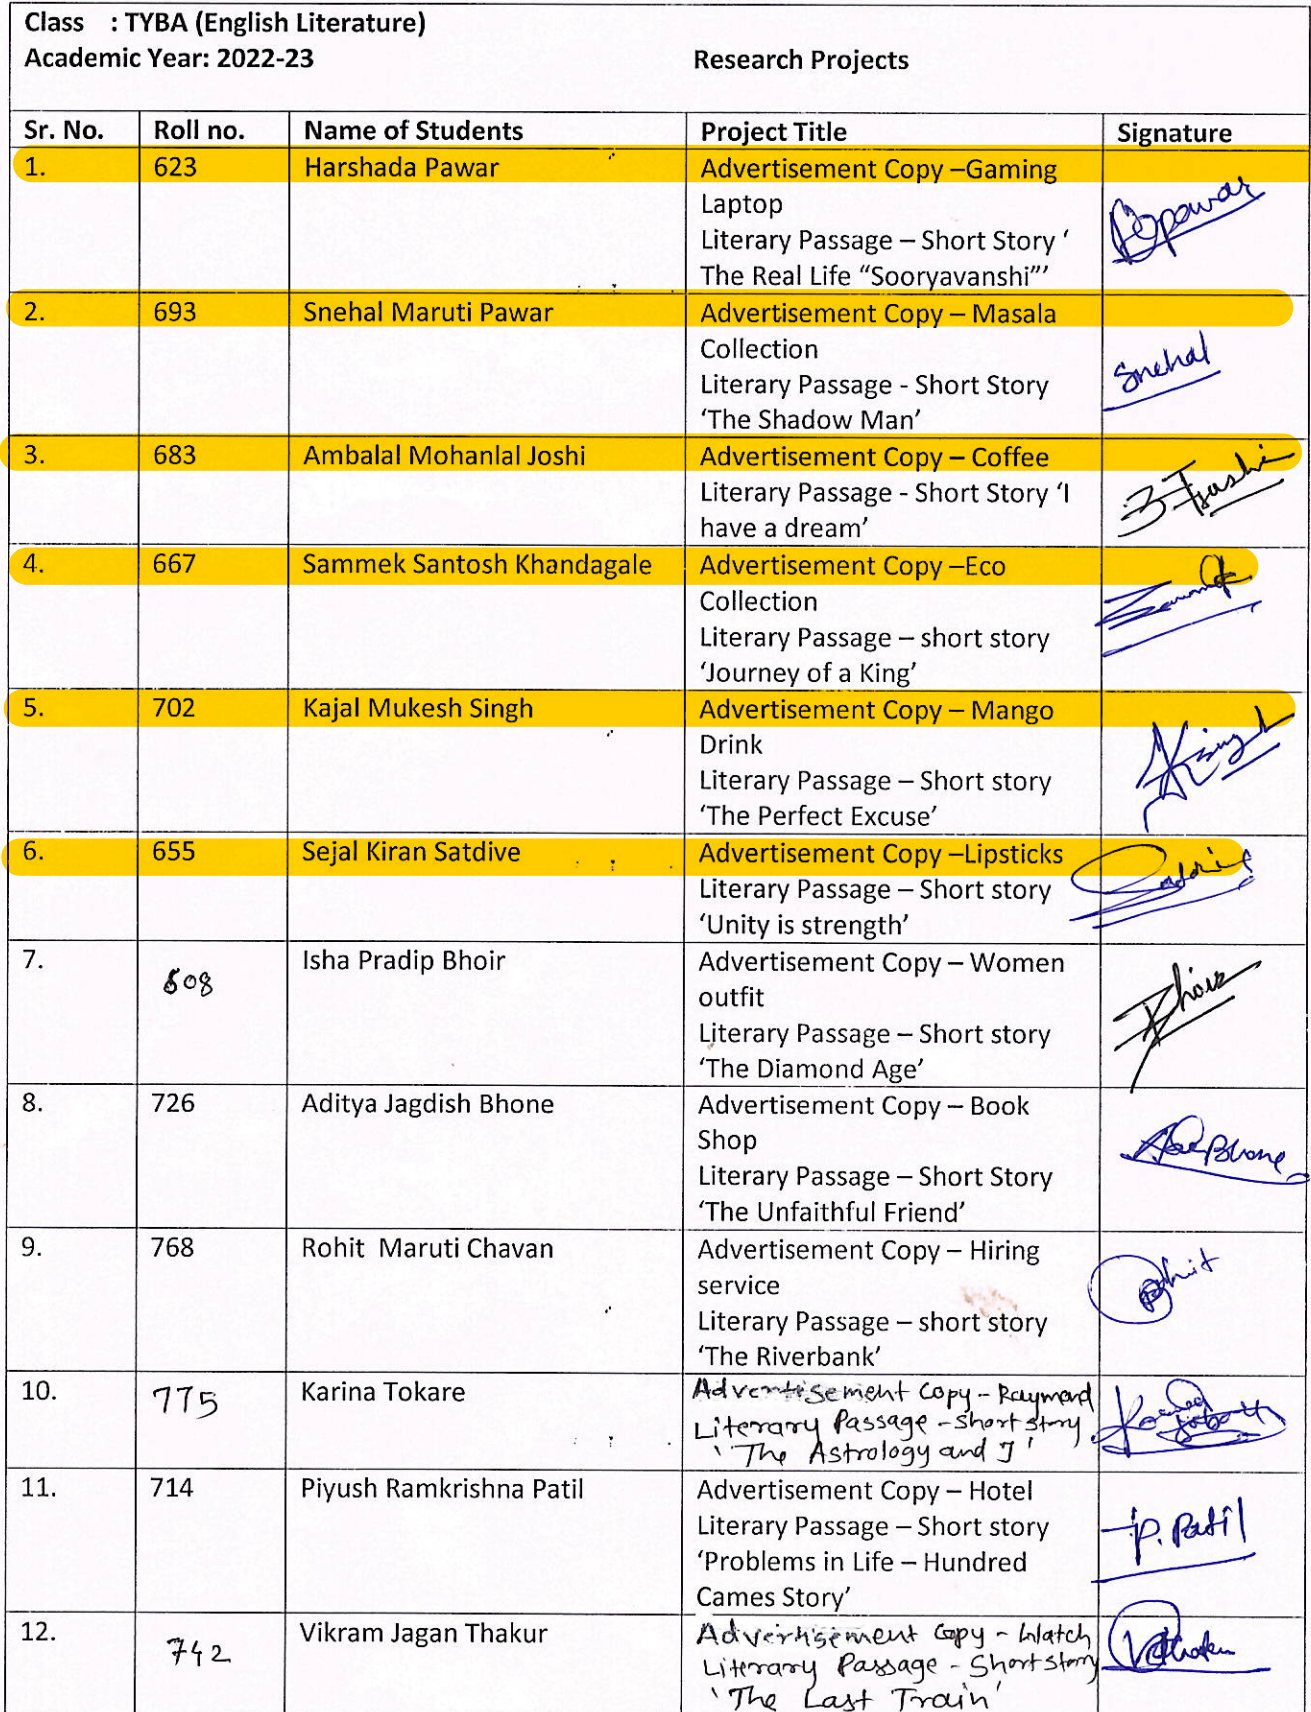 Class : TYBA (English Literature)
Academic Year: 2022-23 Research Projects
Sr. No. Roll no. Name of Students Project Title Signature
1. 623 Harshada Pawar Advertisement Copy –Gaming
Laptop
Literary Passage – Short Story ‘
The Real Life “Sooryavanshi”’
Pawar
2. 693 Snehal Maruti Pawar Advertisement Copy – Masala
Collection
Literary Passage - Short Story
‘The Shadow Man’
Snehal
3. 683 Ambalal Mohanlal Joshi Advertisement Copy – Coffee
Literary Passage - Short Story ‘I
have a dream’
4. 667 Sammek Santosh Khandagale Advertisement Copy –Eco
Collection
Literary Passage – short story
‘Journey of a King’
5. 702 Kajal Mukesh Singh Advertisement Copy – Mango
Drink
Literary Passage – Short story
‘The Perfect Excuse’
6. 655 Sejal Kiran Satdive Advertisement Copy –Lipsticks
Literary Passage – Short story
‘Unity is strength’
7. 608 Isha Pradip Bhoir Advertisement Copy – Women
outfit
Literary Passage – Short story
‘The Diamond Age’
8. 726 Aditya Jagdish Bhone Advertisement Copy – Book
Shop
Literary Passage – Short Story
‘The Unfaithful Friend’
9. 768 Rohit Maruti Chavan Advertisement Copy – Hiring
service
Literary Passage – short story
‘The Riverbank’
10. 775 Karina Tokare Advertisement Copy - Raymond
Literary Passage - Short story
‘The Astrology and I’
11. 714 Piyush Ramkrishna Patil Advertisement Copy – Hotel
Literary Passage – Short story
‘Problems in Life – Hundred
Cames Story’
P. Patil
12. 742 Vikram Jagan Thakur Advertisement Copy - Watch
Literary Passage - Short story
‘The Last Train’